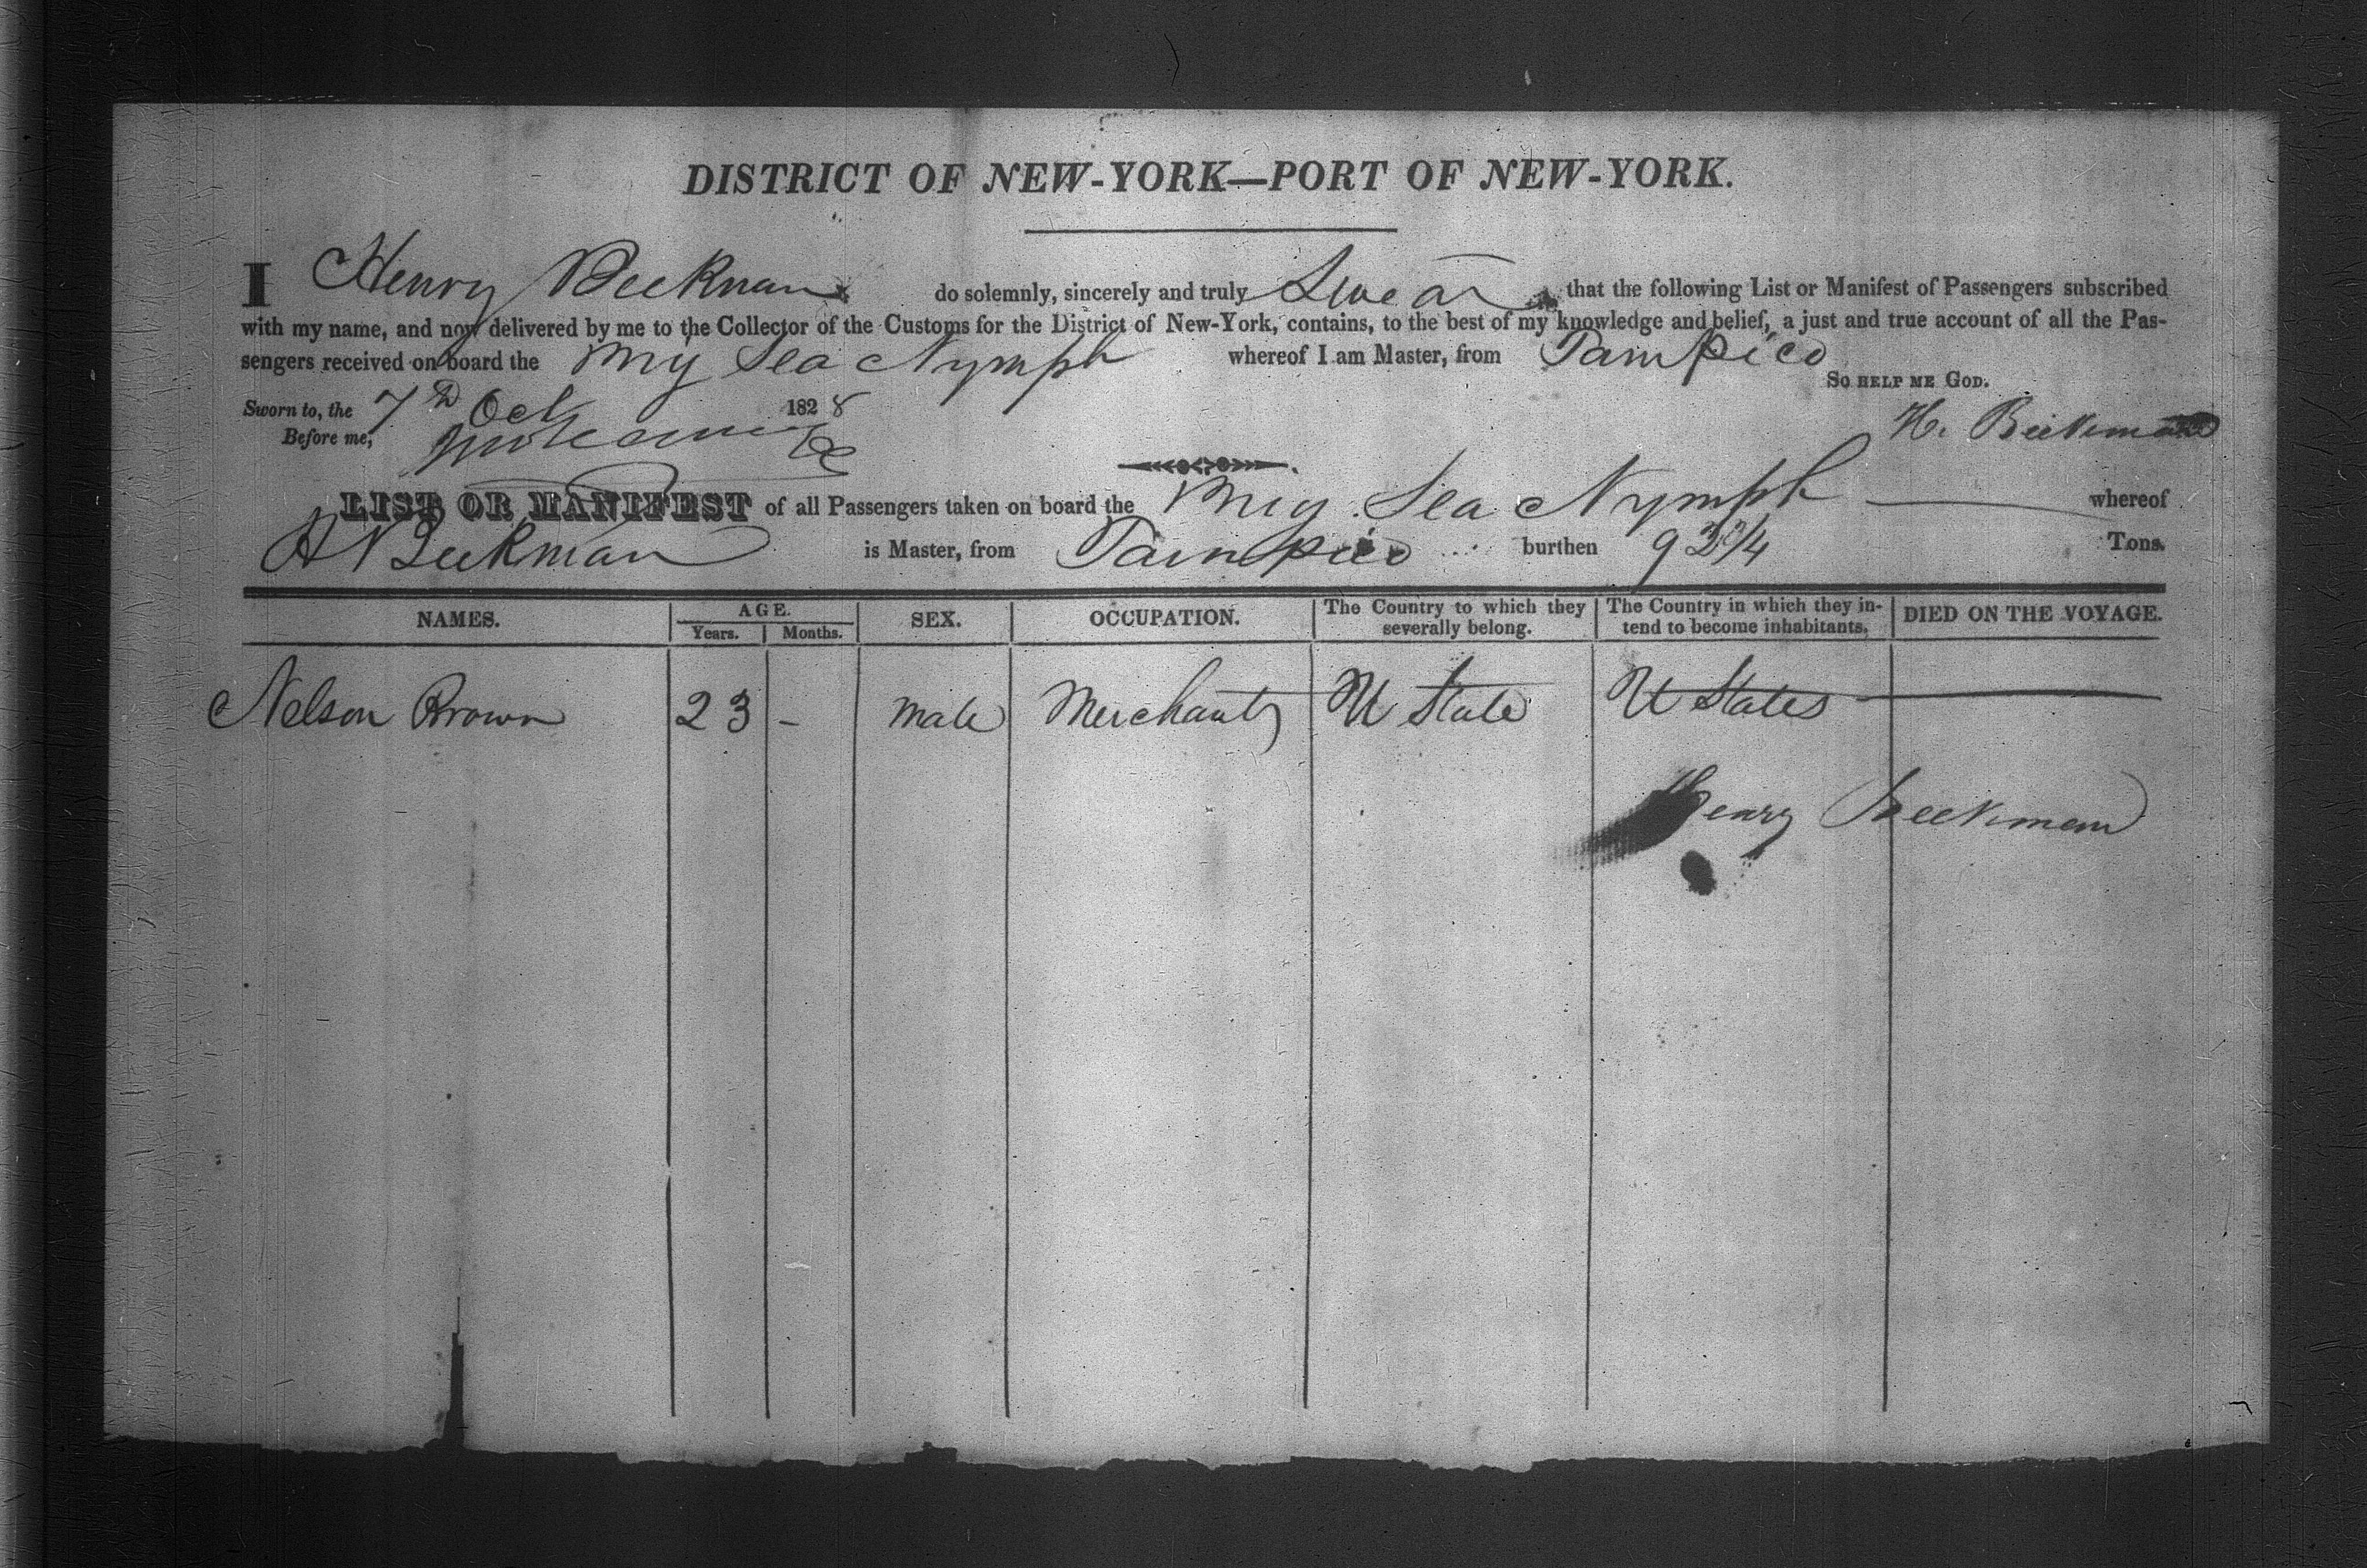 DISTRICT OF NEW-YORK—PORT OF NEW-YORK.
I Henry Beekman do solemnly, sincerely and truly Swear that the following List or Manifest of Passengers subscribed
with my name, and now delivered by me to the Collector of the Customs for the District of New-York, contains, to the best of my knowledge and belief, a just and true account of all the Pas-
sengers received on board the Sea Nymph whereof I am Master, from Tampico
SO HELP ME GOD.
Sworn to, the 7 Oct 1828
Before me, H. Beekman
LIST OR MANIFEST of all Passengers taken on board the Sea Nymph whereof
H Beekman is Master, from Tampico burthen Tons.
NAMES. AGE. SEX. OCCUPATION. The Country to which they severally belong. The Country in which they in- tend to become inhabitants. DIED ON THE VOYAGE.
Years. Months.
Nelson Brown 23 - male Merchant U State U States
Henry Beekman